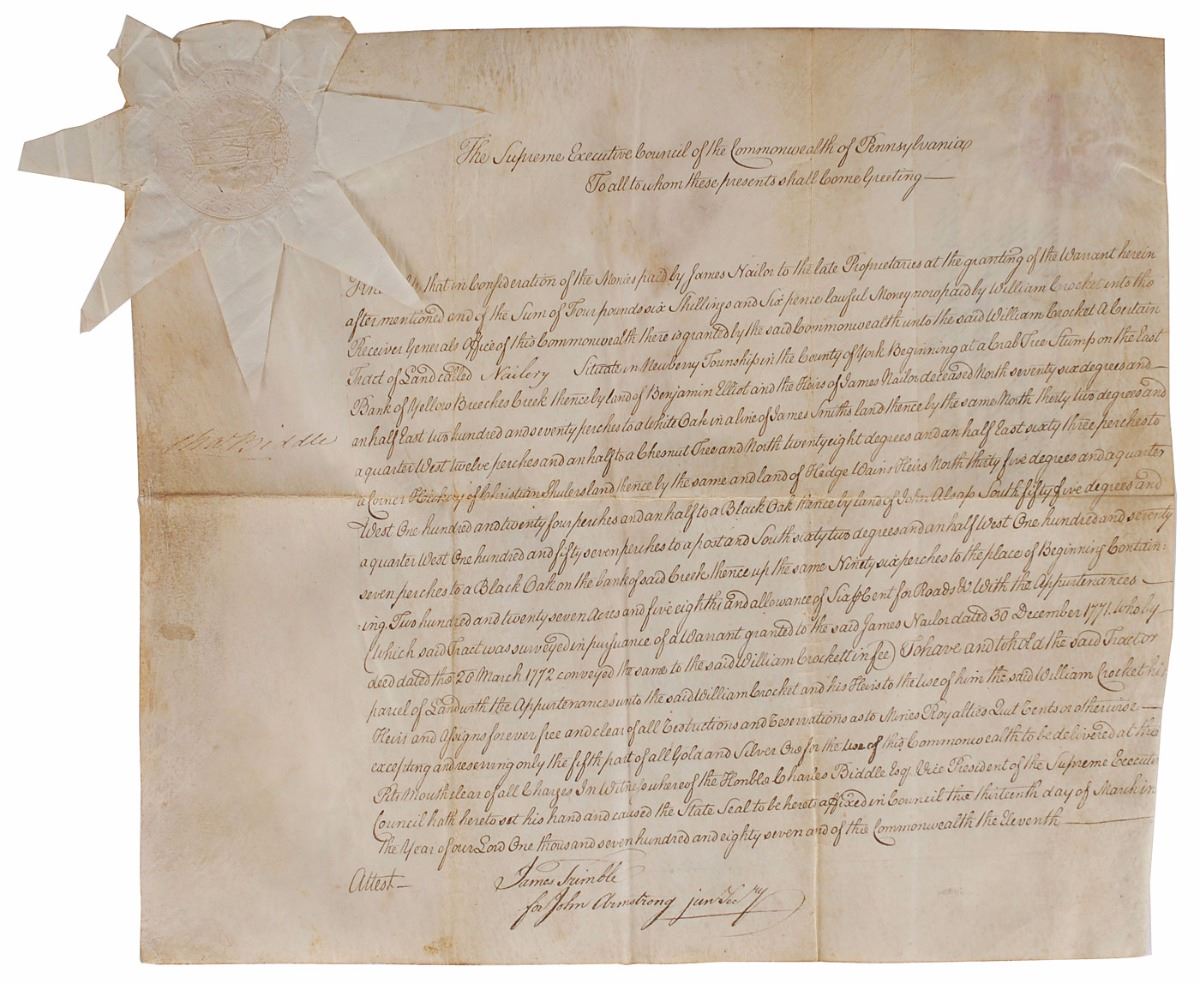 The Supreme Executive Council of the Commonwealth of Pennsylvania
To all to whom these presents shall Come Greeting—
that in Consideration of the Monies paid by James Nailor to the late Proprietaries at the granting of the Warrant herein
after mentioned and of the Sum of Four pounds six Shillings and Six pence lawful Money now paid by William Crocket into the
Receiver Generals Office of this Commonwealth there is granted by the said Commonwealth unto the said William Crocket A Certain
Tract of Land called Nailory Situate in Newberry Township in the County of York Beginning at a Crab Tree Stump on the East
Bank of Yellow Breeches Creek thence by land of Benjamin Elliot and the Heirs of James Nailor deceased North seventy six degrees and
an half East two hundred and seventy perches to a White Oak in a line of James Smiths land thence by the same North thirty two degrees and
a quarter West twelve perches and an half to a Chesnut Tree and North twenty eight degrees and an half East sixty three perches to
a Corner Hickory of Christian Shulers land thence by the same and land of Hedge Wains Heirs North thirty five degrees and a quarter
West One hundred and twenty four perches and an half to a Black Oak thence by land of John Alsap South fifty five degrees and
a quarter West One hundred and fifty seven perches to a post and South sixty two degrees and an half West One hundred and seventy
seven perches to a Black Oak on the bank of said Creek thence up the same Ninety six perches to the place of Beginning Contain=
ing Two hundred and twenty seven Acres and five eighths and allowance of Six ⅌ Cent for Roads &c. With the Appurtenances—
(which said Tract was surveyed in pursuance of a Warrant granted to the said James Nailor dated 30 December 1771. who by
deed dated the 20 March 1772 conveyed the same to the said William Crockett in fee) To have and to hold the said Tract or
parcel of Land with the Appurtenances unto the said William Crocket and his Heirs to the use of him the said William Crocket his
Heirs and Assigns forever free and clear of all Restrictions and Reservations as to Mines Royalties Quit Rents or otherwise—
excepting and reserving only the fifth part of all Gold and Silver Ore for the use of this Commonwealth to be delivered at the
Pits Mouth clear of all Charges In Witness whereof the Honble Charles Biddle Esq. Vice President of the Supreme Executive
Council hath hereto set his hand and caused the State Seal to be hereto affixed in Council the thirteenth day of March in
the Year of our Lord One thousand seven hundred and eighty seven and of the Commonwealth the Eleventh—
Chas Biddle
Attest—
James Trimble
for John Armstrong junr Secry